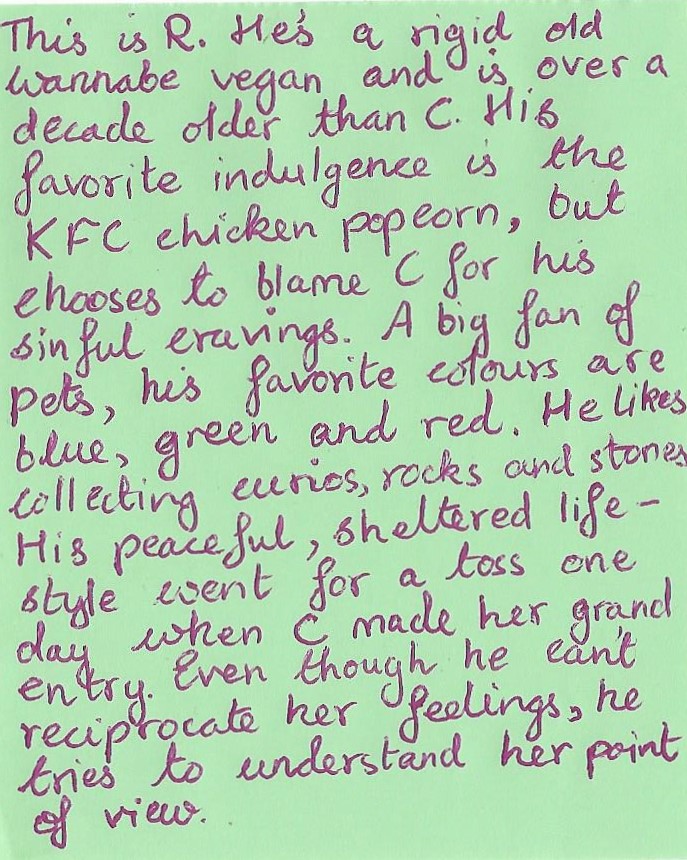 This is R. He's a rigid old
wannabe vegan and is over a
decade older than C. His
favorite indulgence is the
KFC chicken popcorn, but
chooses to blame C for his
sinful cravings. A big fan of
pets, his favorite colours are
blue, green and red. He likes
collecting curios, rocks and stones
His peaceful, sheltered life-
style went for a toss one
day when C made her grand
entry. Even though he can't
reciprocate her feelings, he
tries to understand her point
of view.